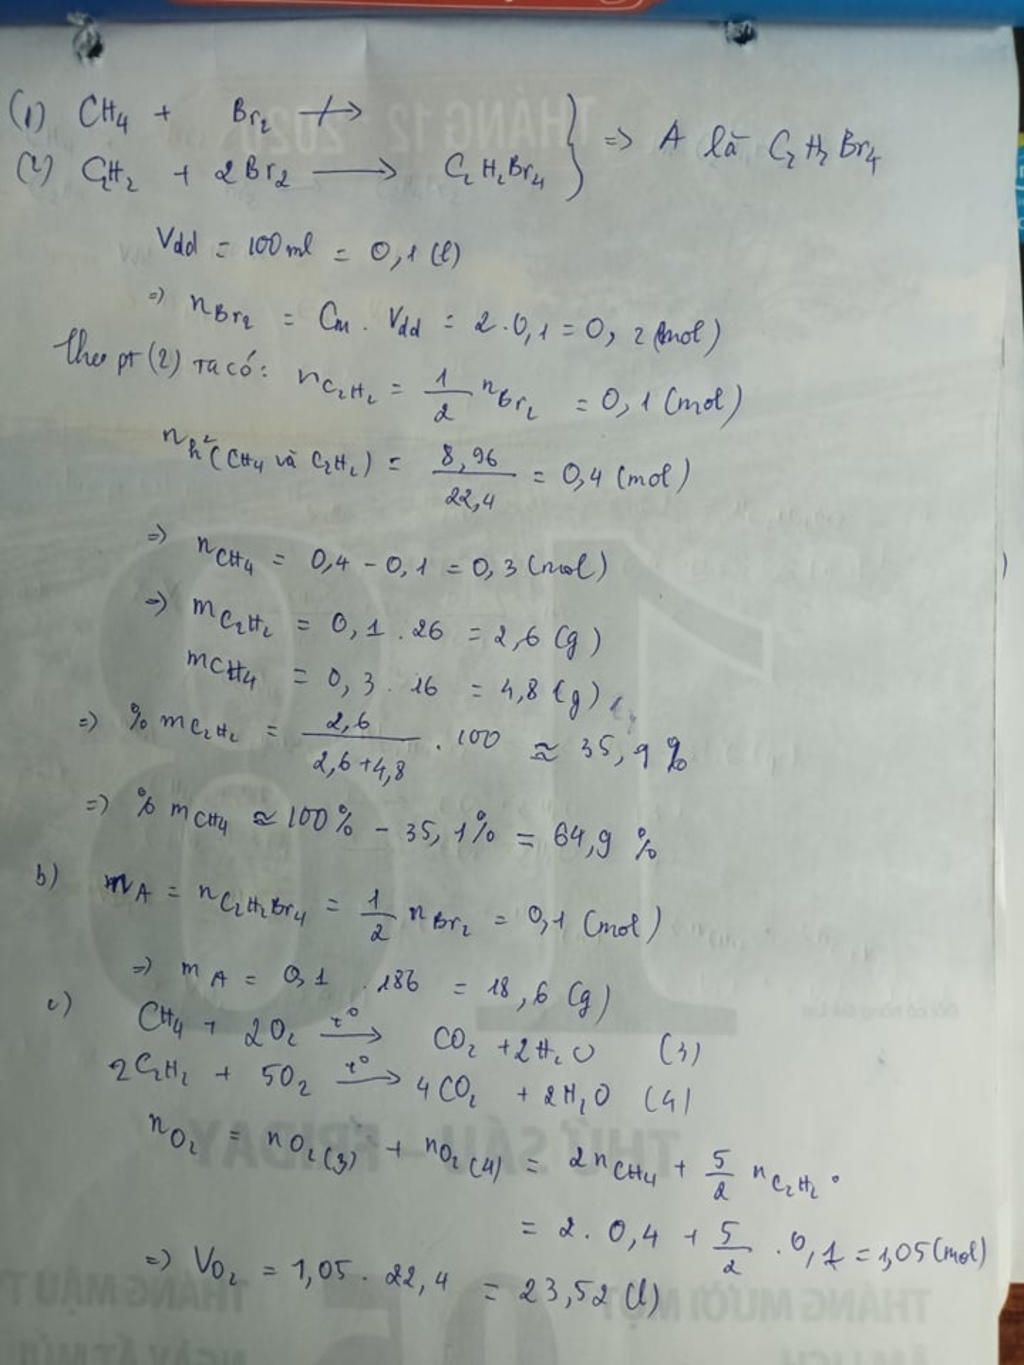 (1) CH4 + Br2 ↛
(2) C2H2 + 2Br2 → C2H2Br4 } => A là C2H2Br4
Vdd = 100ml = 0,1 (l)
=> nBr2 = Cm. Vdd = 2.0,1 = 0,2 (mol)
Theo pt (2) ta có: nC2H2 = 1/2 nBr2 = 0,1 (mol)
nh2 (CH4 và C2H2) = 8,96/22,4 = 0,4 (mol)
=> nCH4 = 0,4 - 0,1 = 0,3 (mol)
=> mC2H2 = 0,1 . 26 = 2,6 (g)
mCH4 = 0,3 . 16 = 4,8 (g)
=> % mC2H2 = 2,6/(2,6+4,8) . 100 ≈ 35,1 %
=> % mCH4 ≈ 100% - 35,1% = 64,9 %
b) nA = nC2H2Br4 = 1/2 nBr2 = 0,1 (mol)
=> mA = 0,1 . 186 = 18,6 (g)
c) CH4 + 2O2 –t°→ CO2 + 2H2O (3)
2C2H2 + 5O2 –t°→ 4CO2 + 2H2O (4)
nO2 = nO2(3) + nO2(4) = 2nCH4 + 5/2 nC2H2
= 2. 0,4 + 5/2 . 0,1 = 1,05 (mol)
=> VO2 = 1,05. 22,4 = 23,52 (l)